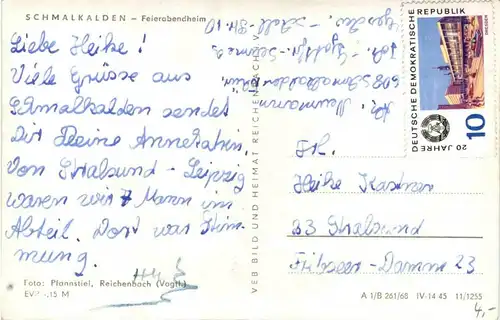 SCHMALKALDEN – Feierabendheim
Liebe Heike!
Viele Grüsse aus
Schmalkalden sendet
Dir Deine Annekatrin.
Von Stralsund - Leipzig
waren wir 7 Mann im
Abteil. Dort war Stim-
mung.
Foto: Pfannstiel, Reichenbach (Vogtl.)
EVP -,15 M
VEB BILD UND HEIMAT REICHENBACH i. V.
Neumann
608 Schmalkalden
20 JAHRE
DEUTSCHE DEMOKRATISCHE REPUBLIK
DRESDEN
10
Fr.
Heike Kastner
23 Stralsund
Tribseer-Damm 23
A 1/B 261/68 IV-14 45 11/1255
4,-